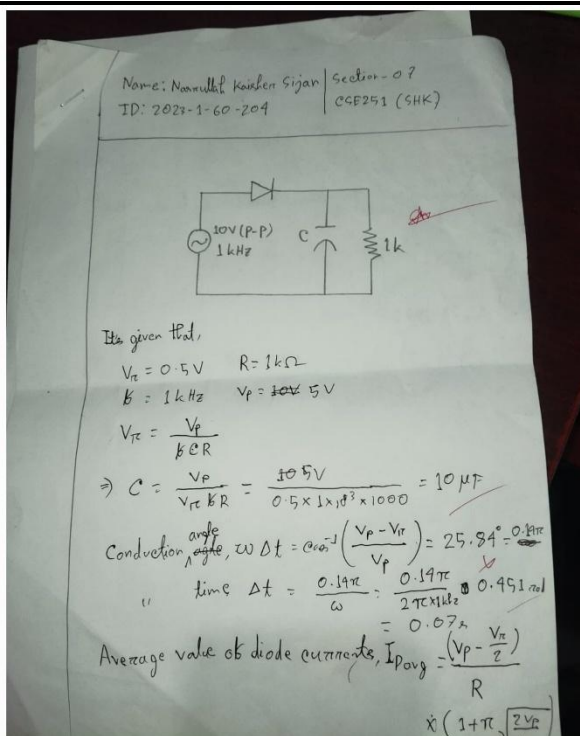 Name: Kaisher Sijan | Section-07
ID: 2023-1-60-204 | CSE251 (SHK)
10V (P-P)
1 kHz
C
1k
Its given that,
Vr = 0.5V R = 1kΩ
f = 1 kHz Vp = 10V 5V
Vr = Vp / fCR
⇒ C = Vp / Vr fR = 10 5V / 0.5 × 1 × 10³ × 1000 = 10 μF
Conduction angle, ω Δt = cos⁻¹ (Vp - Vr / Vp) = 25.84° = 0.14π
" time Δt = 0.14π / ω = 0.14π / 2π×1kHz 0.451 rad
= 0.07s
Average value of diode currents, IDavg = (Vp - Vr / 2) / R
× (1 + π √2Vp